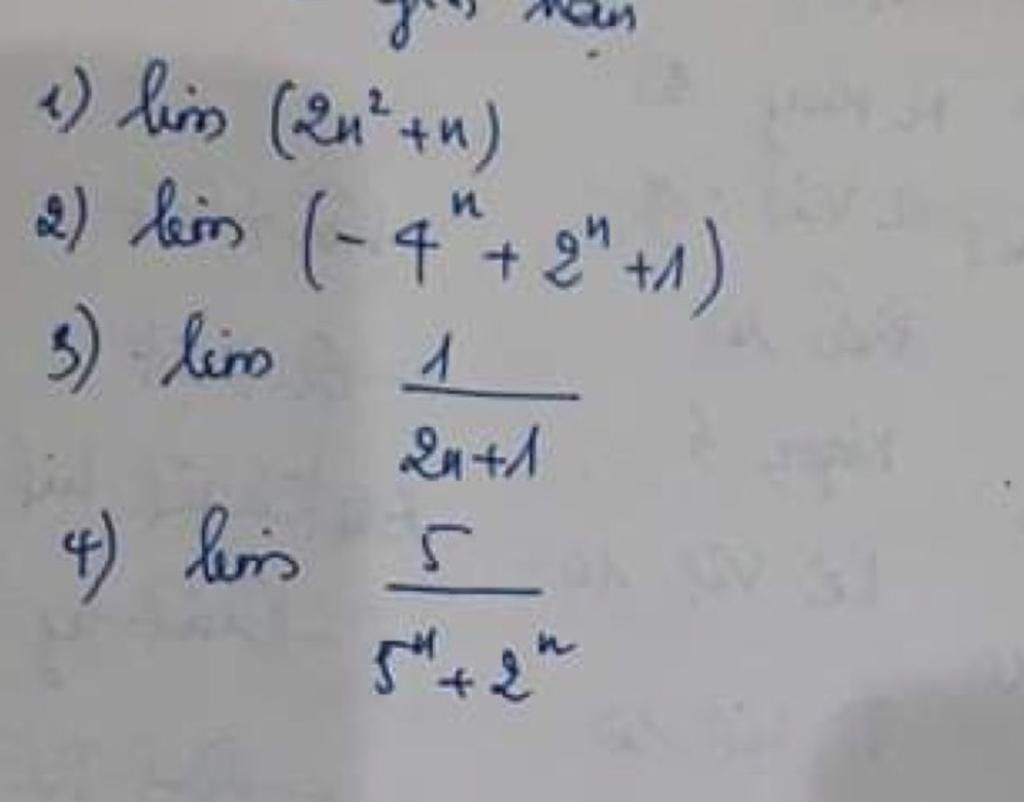 giới hạn
1) lim (2n² + n)
2) lim (- 4ⁿ + 2ⁿ + 1)
3) lim 1/(2n+1)
4) lim 5/(5ⁿ + 2ⁿ)